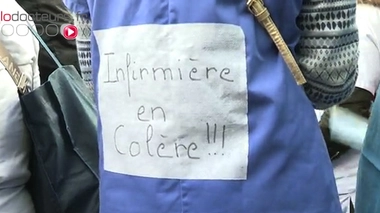 lodocteur
Infirmière
en
Colère!!!